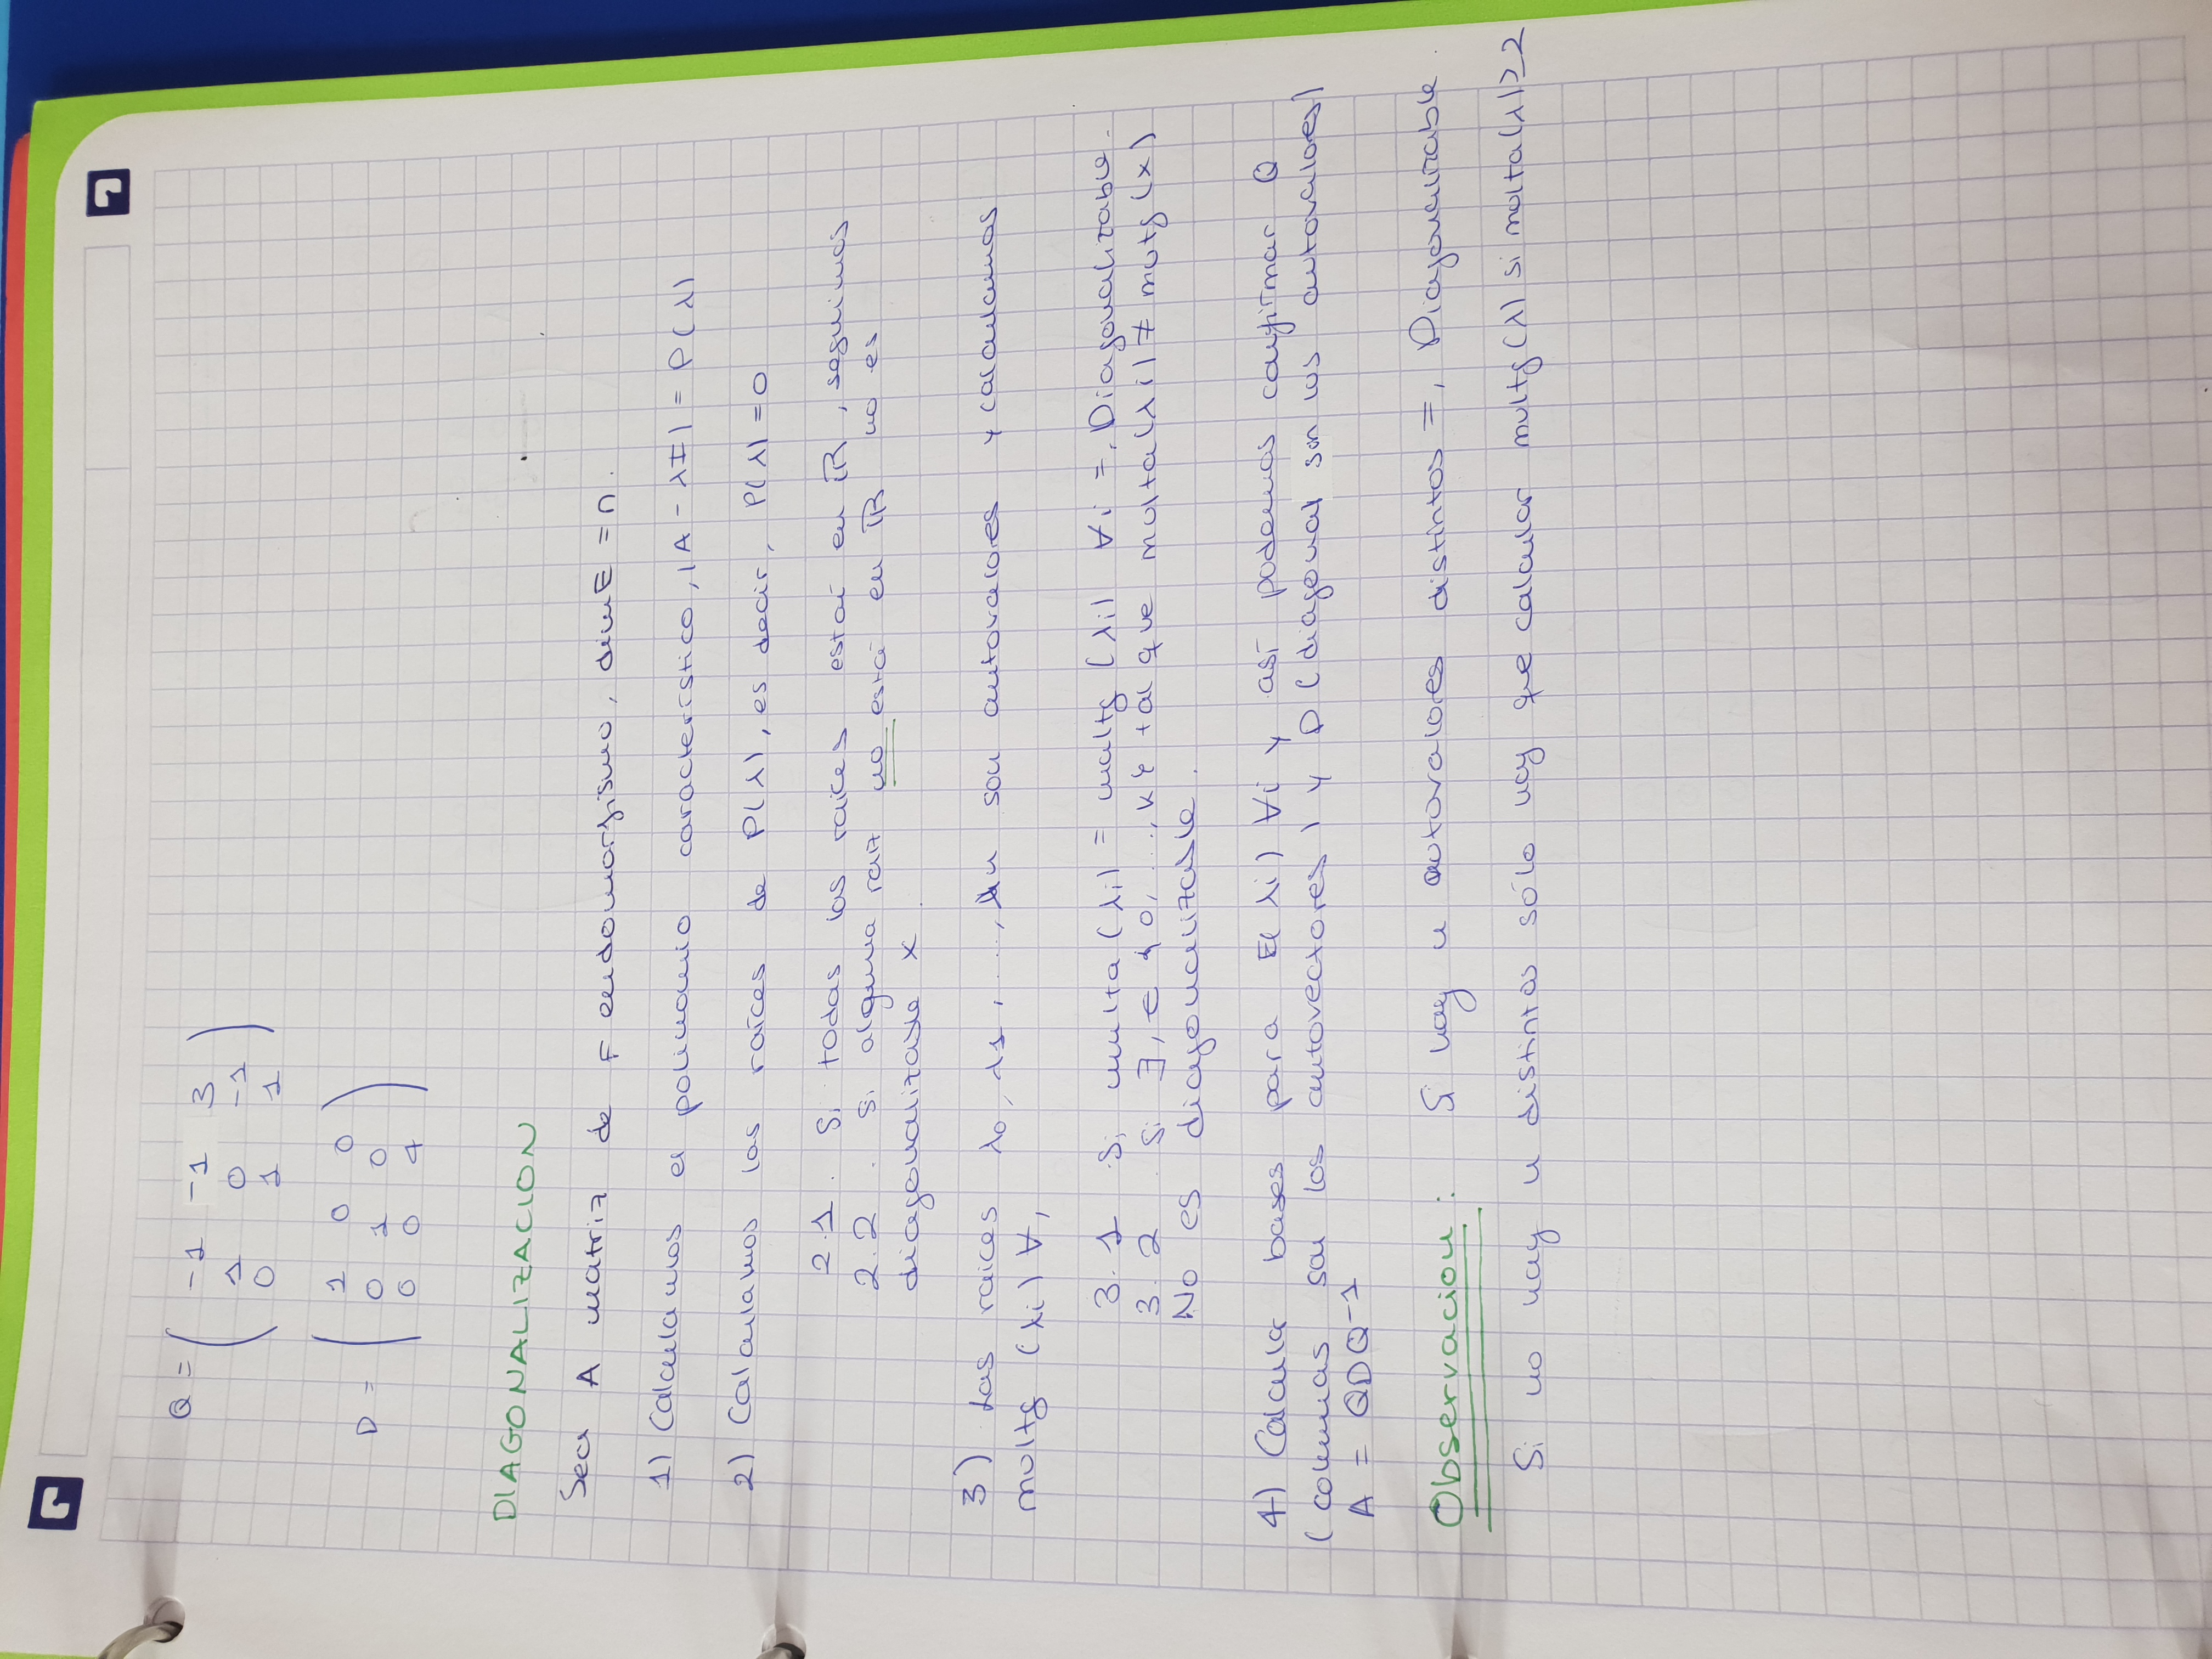 Q = ( -1 -1 3
1 0 -1
0 1 1 )
D = ( 1 0 0
0 1 0
0 0 4 )
DIAGONALIZACION
Sea A matriz de F endomorfismo, dim E = n.
1) Calculamos el polinomio característico, |A - λI| = P(λ)
2) Calculamos las raíces de P(λ), es decir, P(λ) = 0
2.1. Si todas las raíces está en R, seguimos
2.2. Si alguna raíz no está en R no es
diagonalizable x.
3) Las raíces λ0, λ1, ..., λn son autovalores y calculamos
multg (λi) ∀,
3.1 Si multa(λi) = multg (λi) ∀i =, Diagonalizable.
3.2. Si ∃, ∈ {0, ..., k} tal que multa(λi) ≠ multg(x)
No es diagonalizable.
4) Calcula bases para E(λi) ∀i y así podemos confirmar Q
(columnas son los autovectores) y D (diagonal son los autovalores)
A = QDQ-1
Observacion: Si hay n autovalores distintos =, Diagonalizable.
Si no hay n distintos sólo hay que calcular multg(λ) si multa(λ)≥2